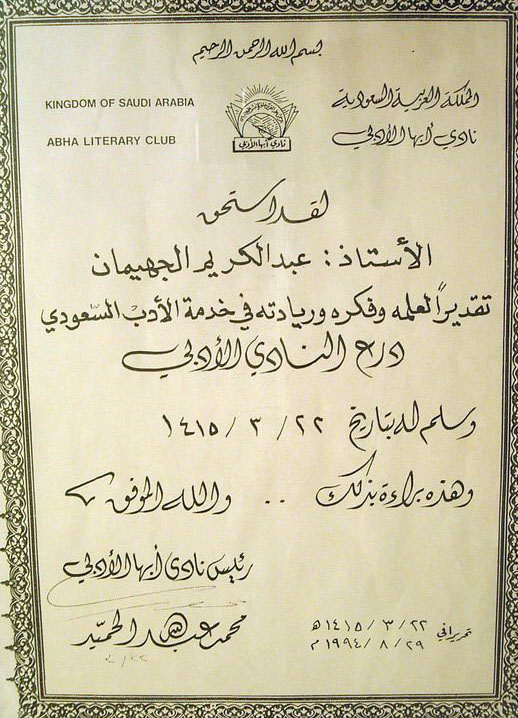 بسم الله الرحمن الرحيم
المملكة العربية السعودية
KINGDOM OF SAUDI ARABIA
نادي أبها الأدبي
ABHA LITERARY CLUB
نادي أبها الأدبي
لقد استحق
الأستاذ : عبد الكريم الجهيمان
تقديراً لعلمه وفكره وريادته في خدمة الأدب السعودي
درع النادي الأدبي
وسلم له بتاريخ ٢٢ / ٣ / ١٤١٥
وهذه براءة بذلك .. والله الموفق
رئيس نادي أبها الأدبي
محمد عبد الله الحميّد
تحريراً في ٢٢ / ٣ / ١٤١٥ هـ
٢٩ / ٨ / ١٩٩٤ م